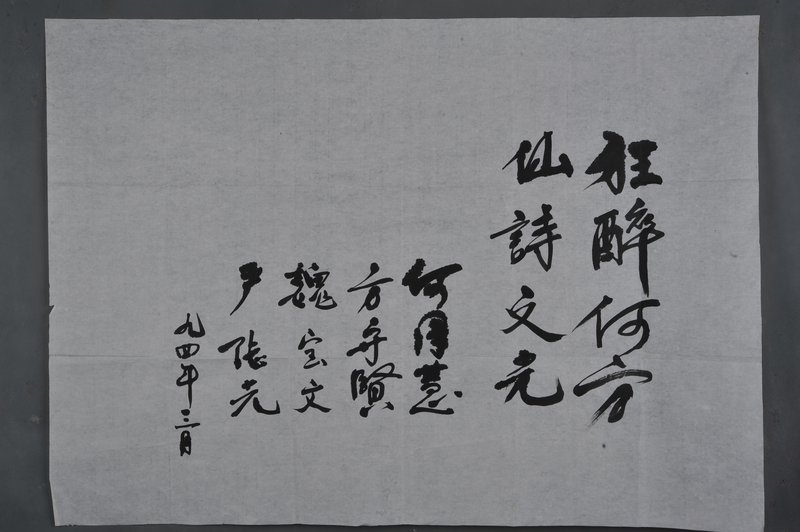 狂醉何方
仙詩文元
何同慧
方守賢
魏宝文
尹張元
九四年三月